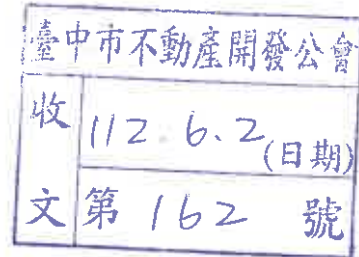 臺中市不動產開發公會
收文
112.6.2(日期)
第162號